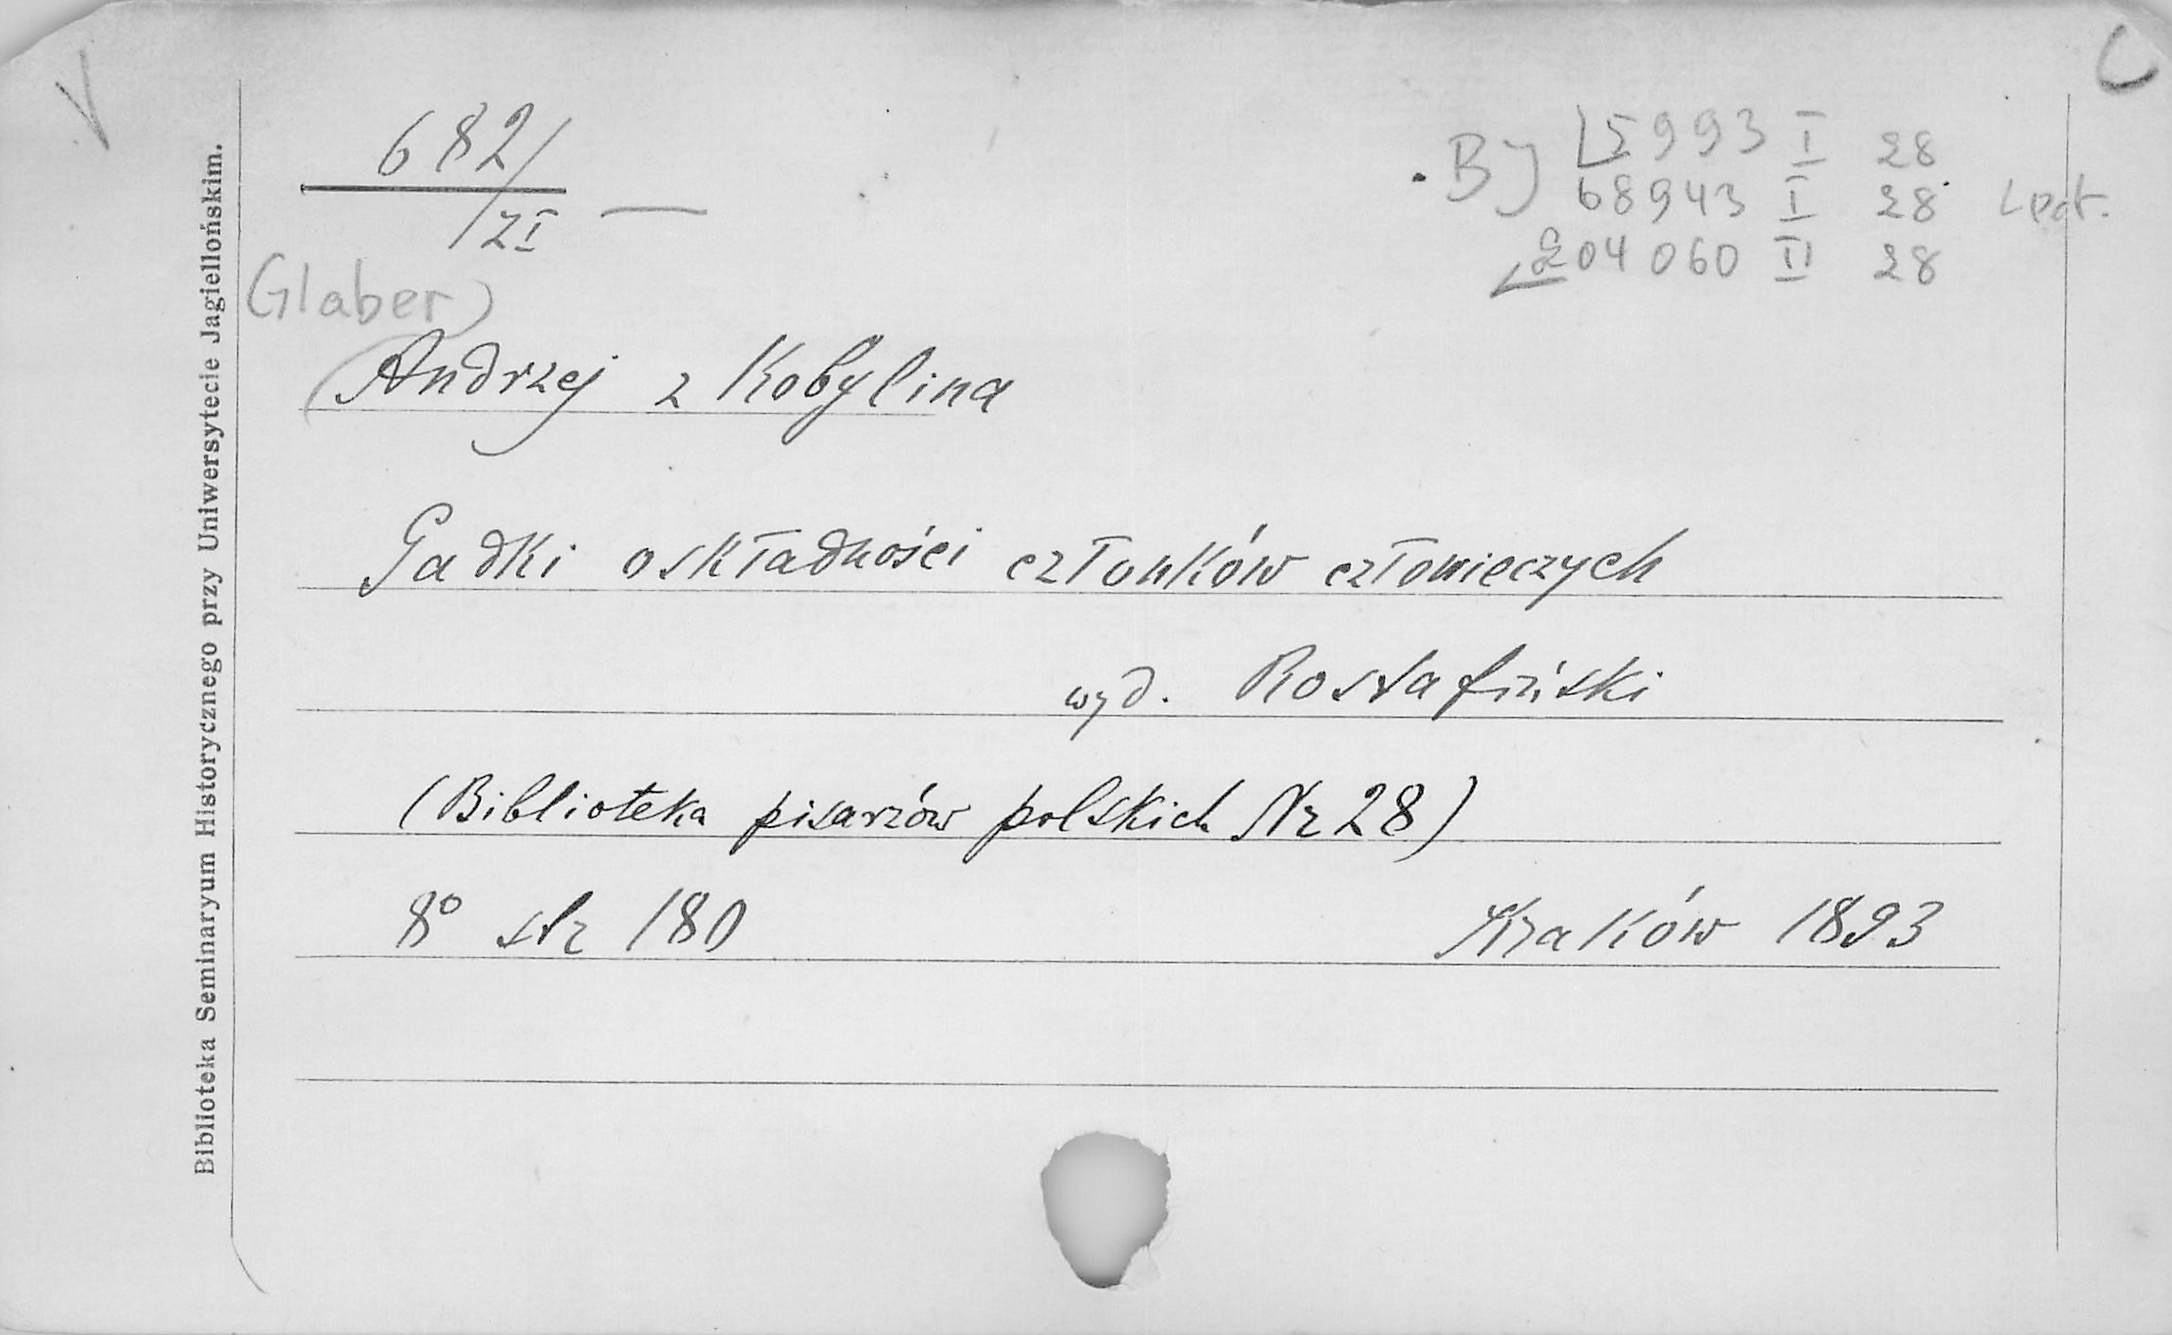 V
682/
ZI —
BJ 15993 I 28
68943 I 28
204060 II 28
(Glaber)
Andrzej z Kobylina
Gadki o składności członków człowieczych
wyd. Rostafiński
(Biblioteka pisarzów polskich Nr 28)
8° str 180 Kraków 1893
Biblioteka Seminaryum Historycznego przy Uniwersytecie Jagiellońskim.